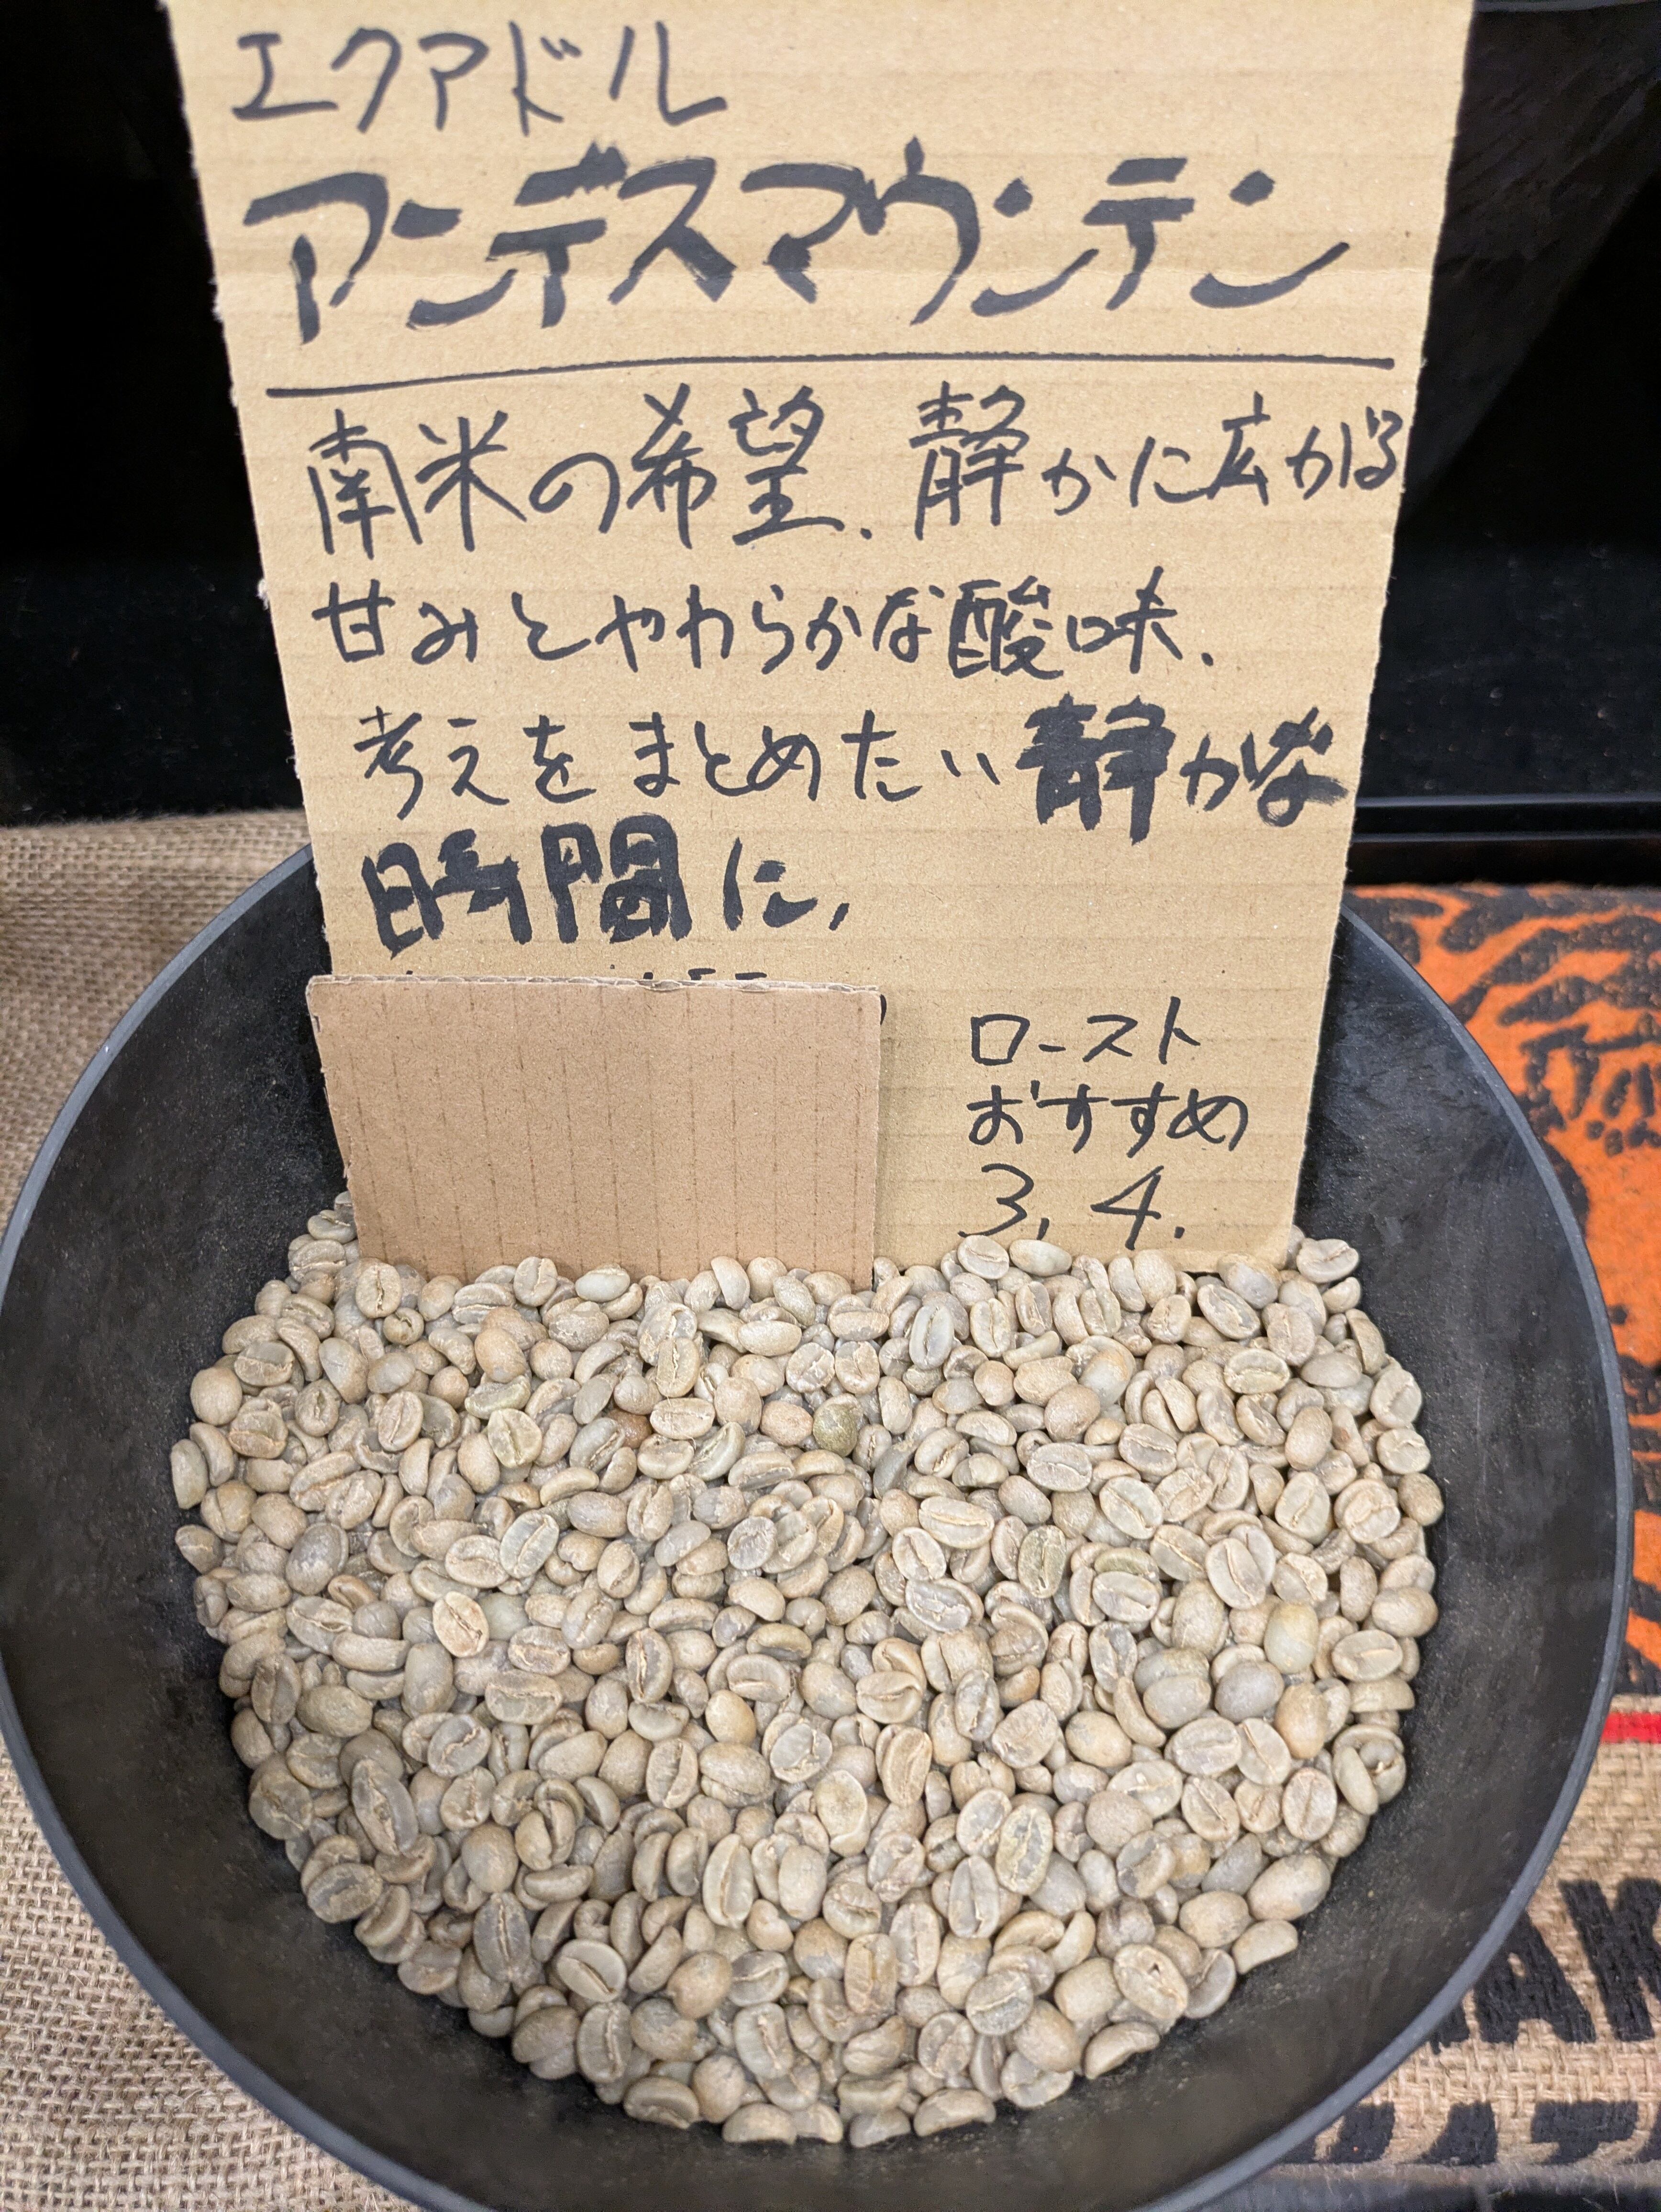 エクアドル
アンデスマウンテン
南米の希望.静かに広がる
甘みとやわらかな酸味.
考えをまとめたい静かな
時間に,
ロースト
おすすめ
3,4.